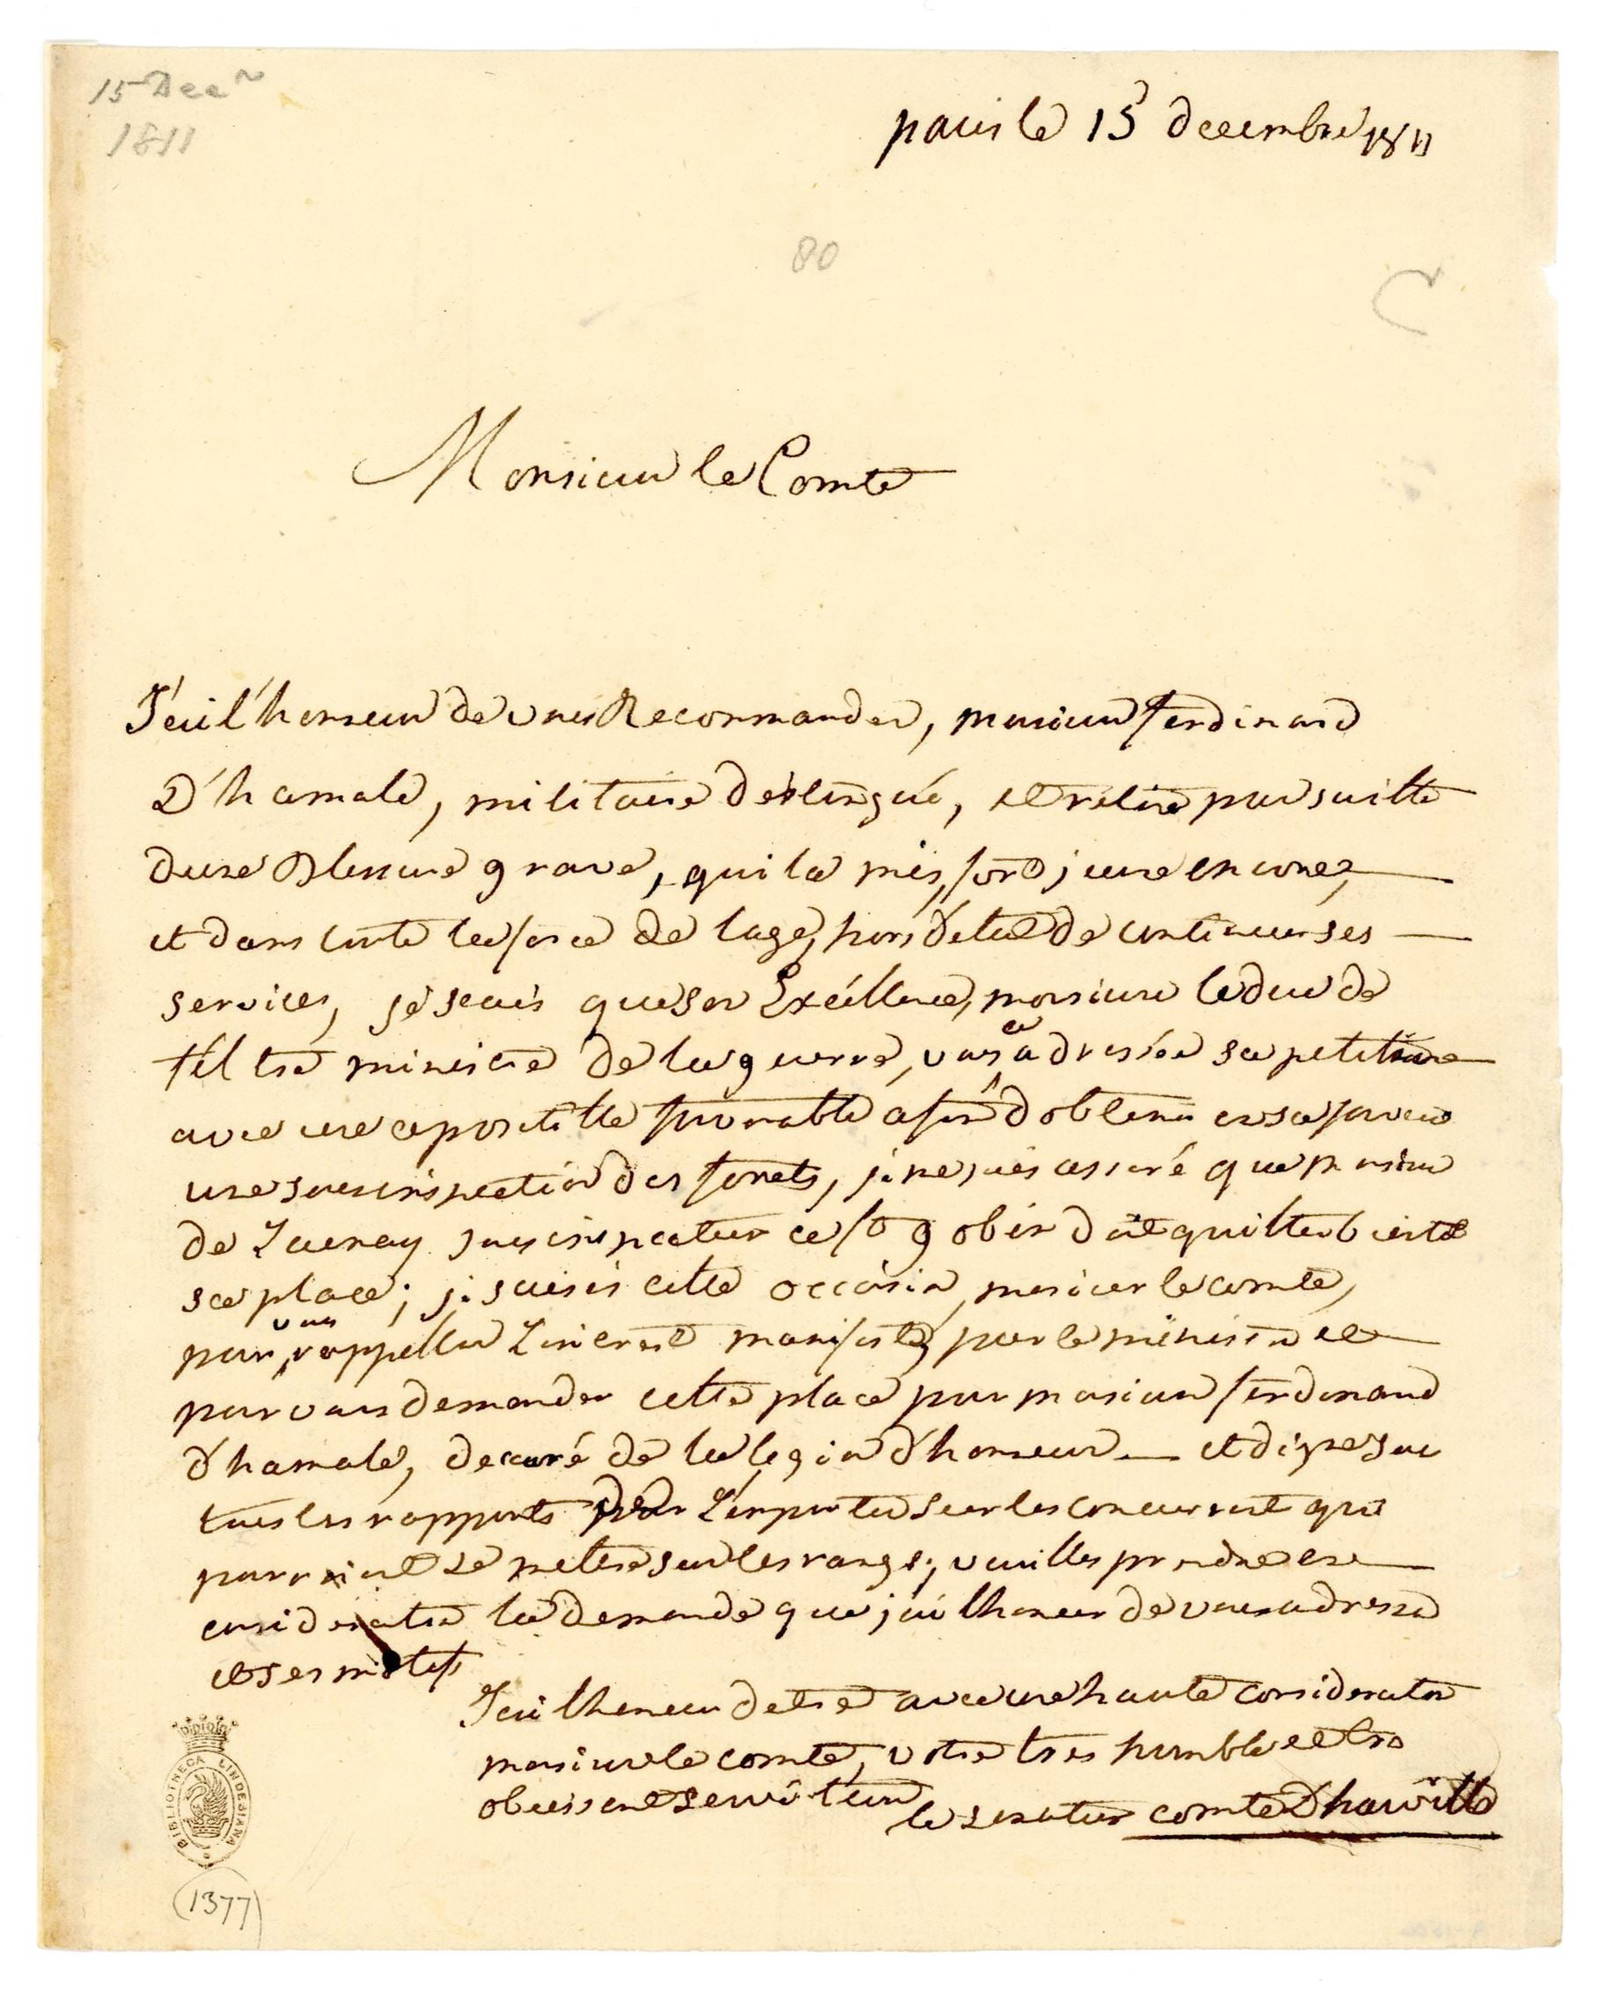 15 Dec
1811
paris le 15 decembre 1811
80
C
Monsieur le Comte
J'ai l'honneur de vous Recommander, monsieur ferdinand
D'hamale, militaire distingué, et retiré par suitte
d'une Blessure grave, qui la mis, fort jeune encore,
et dans toute la force de lage, hors d'etat de continuer ses
services, je scais que son Excéllence, monsieur le duc de
féltre ministre de la guerre, vous a adressée sa petition
avec une apostille favorable afin d'obtenir en sa faveur
une sous inspection des forets, je me suis assuré que monsieur
de Launay sous inspecteur doit quitter bientot
sa place; je saisis cette occasion, monsieur le comte,
pour vous rappeller L'interest manifesté par le ministre et
pour vous demander cette place pour monsieur ferdinand
d'hamale, decoré de la legion d'honneur et digne sous
tous les rapports de L'emporter sur les concurrent qui
pourroient se mettre sur les rangs; veuillez prendre en
consideration la demande que j'ai l'honneur de vous adresser
et ses motifs
J'ai l'honneur d'etre avec une haute consideration
monsieur le comte, votre tres humble et tres
obeissant serviteur
le senateur comte D'harville
BIBLIOTHECA LINDESIANA
(1377)